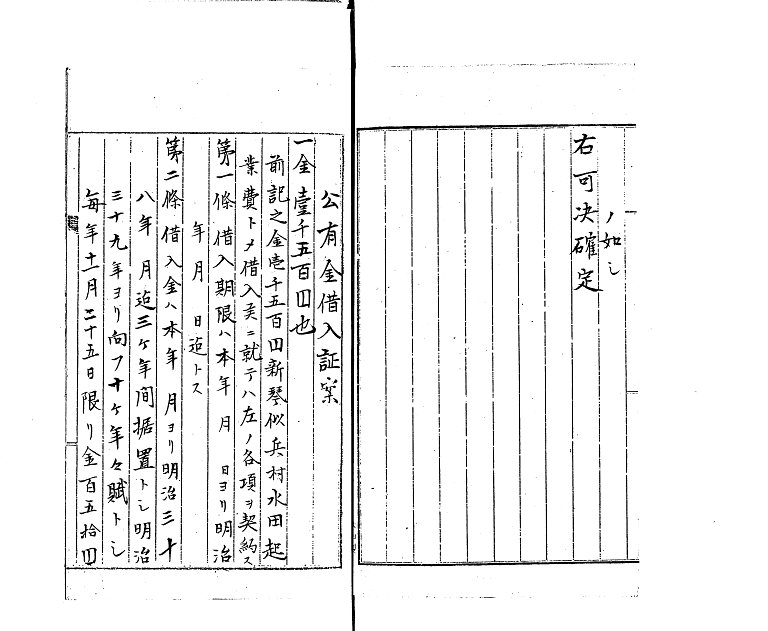 ノ如シ
右可決確定
公有金借入証案
一金壹千五百円也
前記之金壱千五百円新琴似兵村水田起
業費トメ借入候ニ就テハ左ノ各項ヲ契約ス
第一條借入期限ハ本年　月　日ヨリ明治
年　月　日迄トス
第二條借入金ハ本年　月ヨリ明治三十
八年　月迄三ヶ年間据置トシ明治
三十九年ヨリ向フ十ヶ年々賦トシ
毎年十二月二十五日限リ金百五拾円